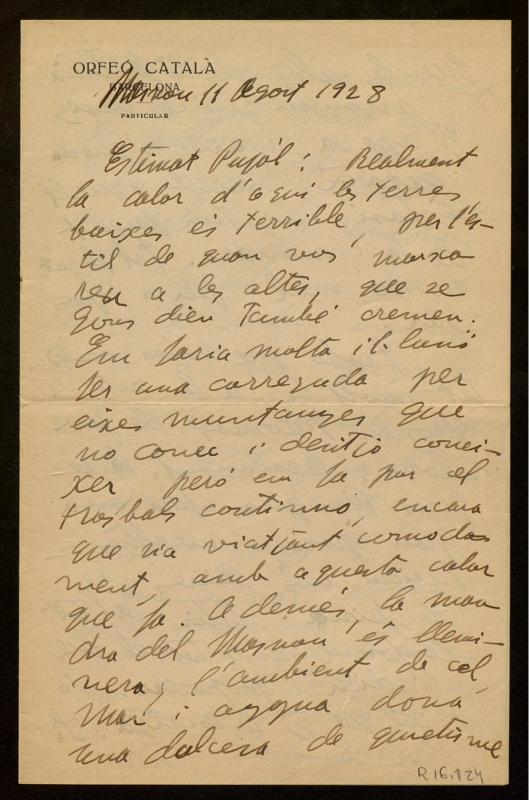 ORFEÓ CATALÀ
BARCELONA
PARTICULAR
Masnou 11 Agost 1928
Estimat Pujól: Realment
la calor d'aqui les terres
baixes és terrible, per l'es-
til de quan vos marxa
reu a les altes, que se
gons dieu També cremen.
Em faria molta il·lusió
fer una correguda per
eixes muntanyes que
no conec i desitjo conei-
xer peró em fa por el
trasbals continuo, encara
que sia viatjant comoda
ment, amb aquesta calor
que fa. Ademés, la man
dra del Masnou és llemi-
nera; l'ambient de cel,
mar i aygua dona
una dolcesa de quietisme
R 16.124